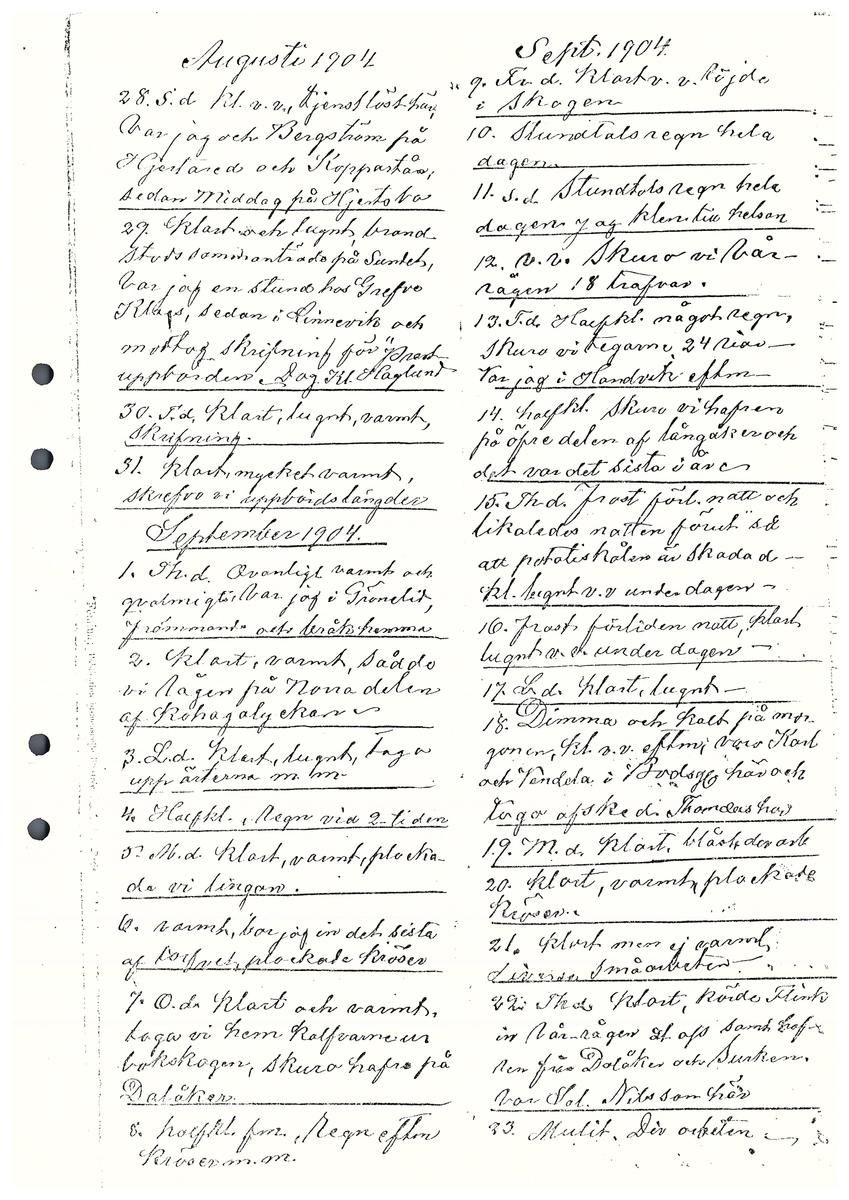 Augusti 1904
28. S.d kl. v.v., tjenstlöst här,
Var jag och Bergström på
Hjertared och Kopparåsa,
sedan Middag på Hjertsbo
29. Klart och lugnt, brand
stods sammanträde på Sundet,
Var jag en stund hos Grefve
Klaes, sedan i Linnevik och
mottog skrifning för
uppbörden. Dag Kl. Haglund
30. T.d. Klart, lugnt, varmt,
Skrifning.
31. Klart, mycket varmt,
skrefvo vi uppbördslängder
September 1904.
1. Th.d. Ovanligt varmt och
qvalmigt, Var jag i Grönelid,
främmande och bråk hemma
2. Klart, varmt, sådde
vi Rågen på Norra delen
af Kohagalyckan
3. L.d. Klart, lugnt, Toga
upp ärterna m.m.
4. Halfkl., Regn vid 2-tiden
5. M.d. Klart, varmt, plocka-
de vi lingon.
6. varmt, bar jag in det sista
af plockade Kröser
7. O.d. Klart och varmt,
toga vi hem Kalfvarne ur
bokskogen, skuro hafre på
Dalåker.
8. halfkl. fm., Regn eftm
Kröser m.m.
Sept. 1904.
9. Fr.d. Klart v.v. Röjde
i Skogen
10. Stundtals regn hela
dagen.
11. S.d Stundtals regn hela
dagen jag klen till helsan
12. v.v. Skuro vi Vår-
rågen 18 trafvar.
13. T.d. Halfkl. något regn,
Skuro vi tegarne 24
Var jag i Handvik eftm
14. halfkl. Skuro vi hafren
på öfre delen af långåker och
det var det sista i år
15. Th.d. Frost förl. natt och
likaledes natten förut så
att potatiskålen är skadad
kl. lugnt v.v under dagen
16. Frost förliden natt, klart
lugnt v.v. under dagen
17. L.d. Klart, lugnt
18. Dimma och Kalt på mor-
gonen, kl. v.v. eftm, varo Karl
och Vendela i här och
togo afsked. Thomas har
19. M.d. Klart, blåst,
20. Klart, varmt, plockade
Kröser.
21. Klart men ej varmt,
Diverse Småarbeten
22. Th.d. Klart, körde Flink
in Vår-rågen åt oss samt haf-
ren från Dalåker och Surken.
Var Sal. Nilsson här
23. Mulit. Div arbeten